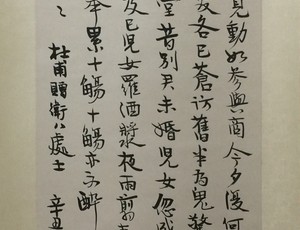 見動如参與商今夕復何
髮各已蒼訪舊半為鬼驚
堂昔別君未婚兒女忽成
及已兒女羅酒漿夜雨剪
舉累十觴十觴亦不醉
杜甫贈衛八處士 辛丑